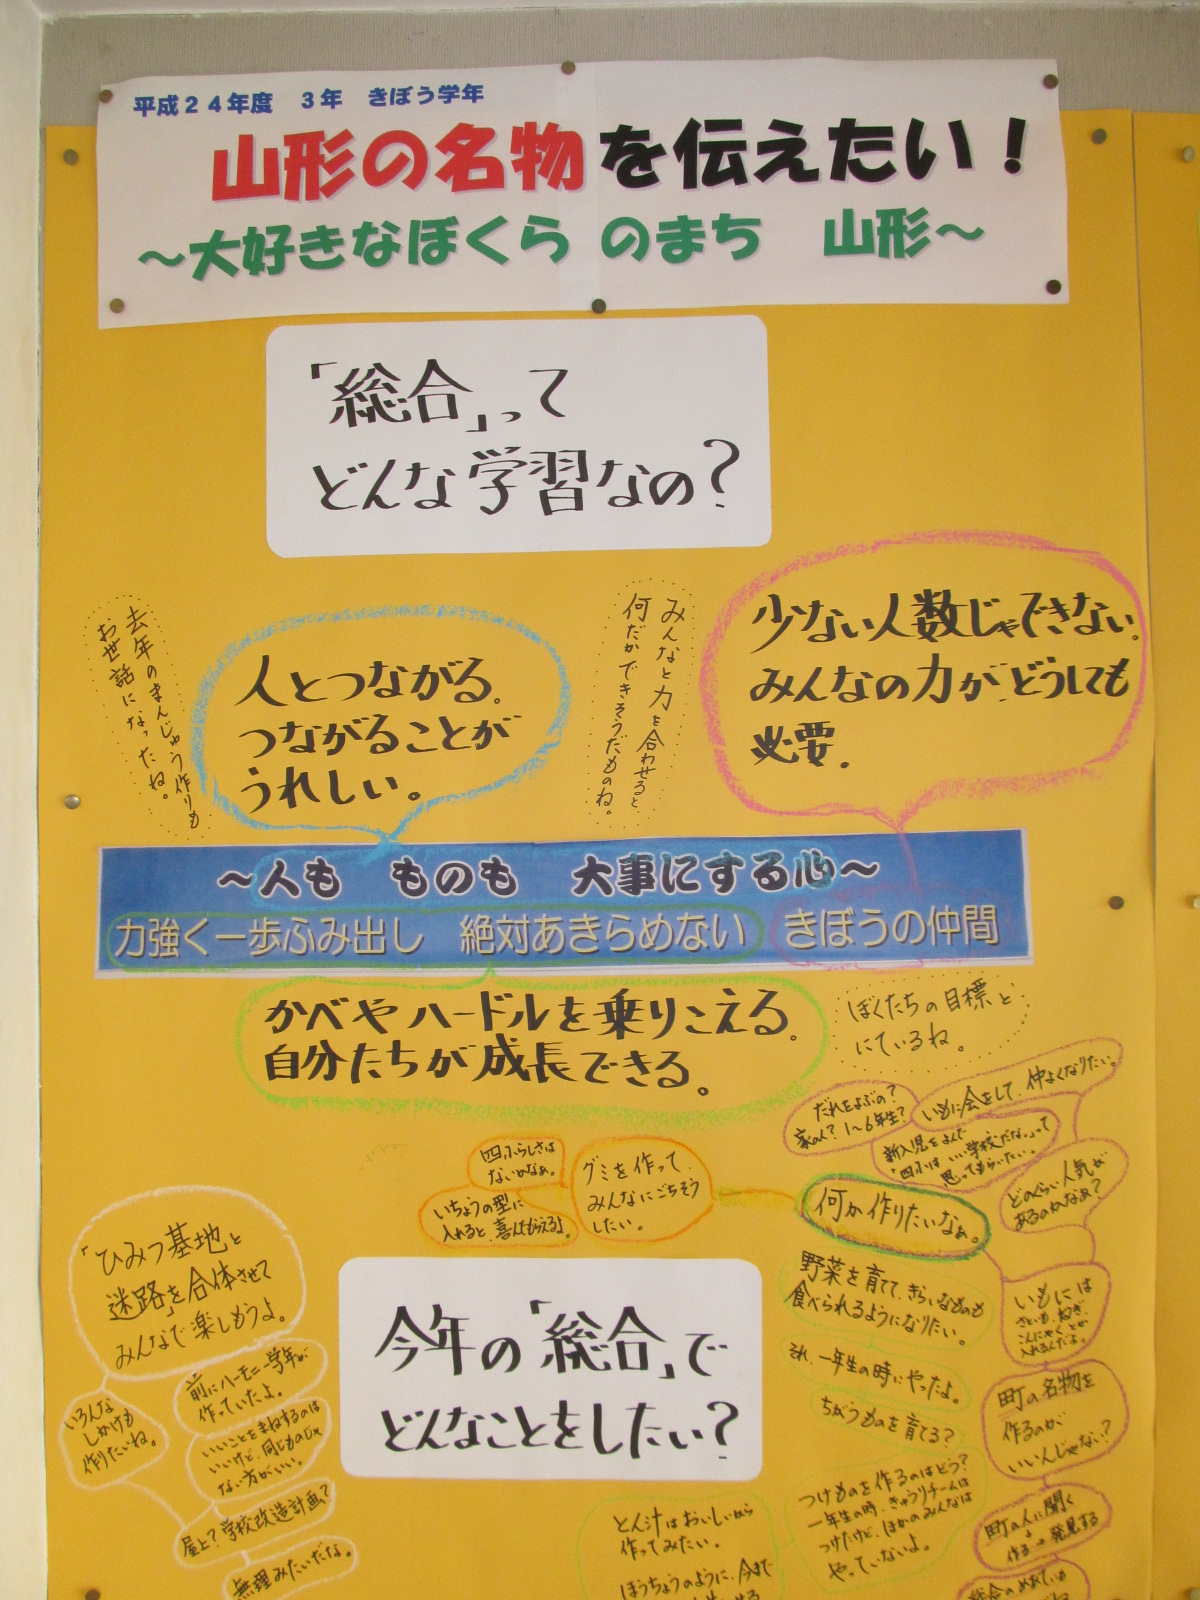 平成24年度 3年 きぼう学年
山形の名物を伝えたい!
~大好きなぼくら のまち 山形~
「総合」って
どんな学習なの?
去年のまんじゅう作りも
お世話になったね。
人とつながる。
つながることが
うれしい。
みんなと力を合わせると
何だかできそうだものね。
少ない人数じゃできない。
みんなの力が、どうしても
必要。
~人も ものも 大事にする心~
力強く一歩ふみ出し 絶対あきらめない きぼうの仲間
かべやハードルを乗りこえる。
自分たちが成長できる。
ぼくたちの目標と
にているね。
だれをよぶの?
家の人?1~6年生?
いもに会をして、仲よくなりたい。
新入児をよんで
「四小はいい学校だな。」って
思ってもらいたい。
どのくらい人気が
あるのかなぁ?
四小らしさは
ないかなぁ。
いちょうの型に
入れると、喜んでもらえるよ。
グミを作って、
みんなにごちそう
したい。
何か作りたいなぁ。
野菜を育てて、きらいなものも
食べられるようになりたい。
それ、一年生の時にやったよ。
ちがうものを育てる?
つけものを作るのはどう?
一年生の時、きゅうりチームは
つけたけど、ほかのみんなは
やっていないよ。
いもには
さといも、ねぎ、
こんにゃくとか
入れるんだよ。
町の名物を
作るのが
いいんじゃない?
町の人に聞く
↓
作る→発見する
総合のめあても
「ひみつ基地と
迷路」を合体させて
みんなで楽しもうよ。
前にハーモニー学年が
作っていたよ。
いろんな
しかけも
作りたいね。
いいことをまねするのは
いいけど、同じものじゃ
ない方がいい。
屋上?学校改造計画?
無理みたいだな。
今年の「総合」で
どんなことをしたい?
とん汁はおいしいから
作ってみたい。
ほうちょうのように、今まで